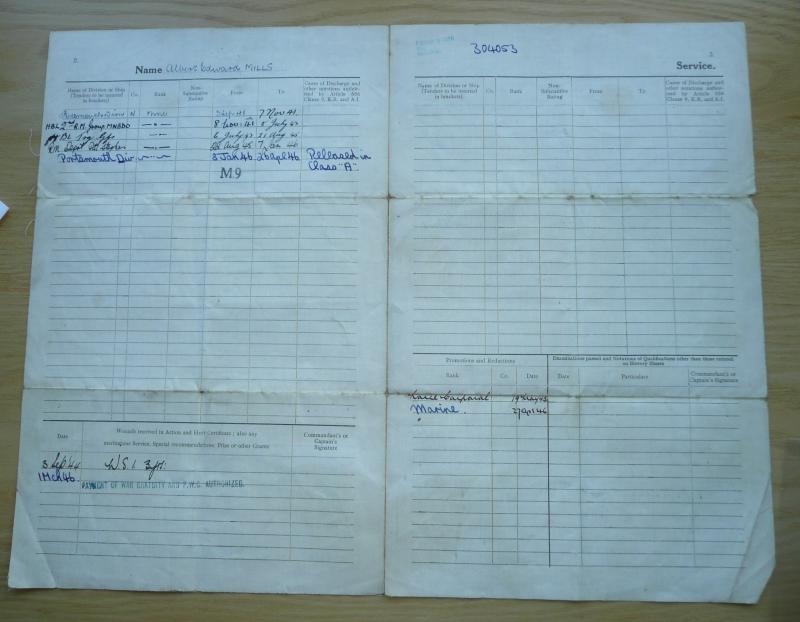 2.
Name Albert Edward MILLS
Name of Division or Ship (Tenders to be inserted in brackets)
Co.
Rank
Non-Substantive Rating
From
To
Cause of Discharge and other notations authorized by Article 606 Clause 9, K.R. and A.I.
N 7 Nov 41
HBL 2nd R.M. Group MNBDO —"— 8 Nov 41 5 July 43
—"— 6 July 43
R.M. Depot —"— Aug 45 7 Jan 46
Portsmouth Div —"— 8 Jan 46 26 Apl 46 Released in
Class "A".
M9
Date
Wounds received in Action and Hurt Certificate; also any meritorious Service, Special recommendations, Prize or other Grants
Commandant's or Captain's Signature
3 Sep 44
1 Mch 46.
PAYMENT OF WAR GRATUITY AND P.W.C. AUTHORIZED.
304053
3.
Service.
Name of Division or Ship (Tenders to be inserted in brackets)
Co.
Rank
Non-Substantive Rating
From
To
Cause of Discharge and other notations authorized by Article 606 Clause 9, K.R. and A.I.
Promotions and Reductions
Rank
Co.
Date
Examinations passed and Notations of Qualifications other than those entered on History Sheets
Date
Particulars
Commandant's or Captain's Signature
Lance Corporal
Marine. 27 Apl 46